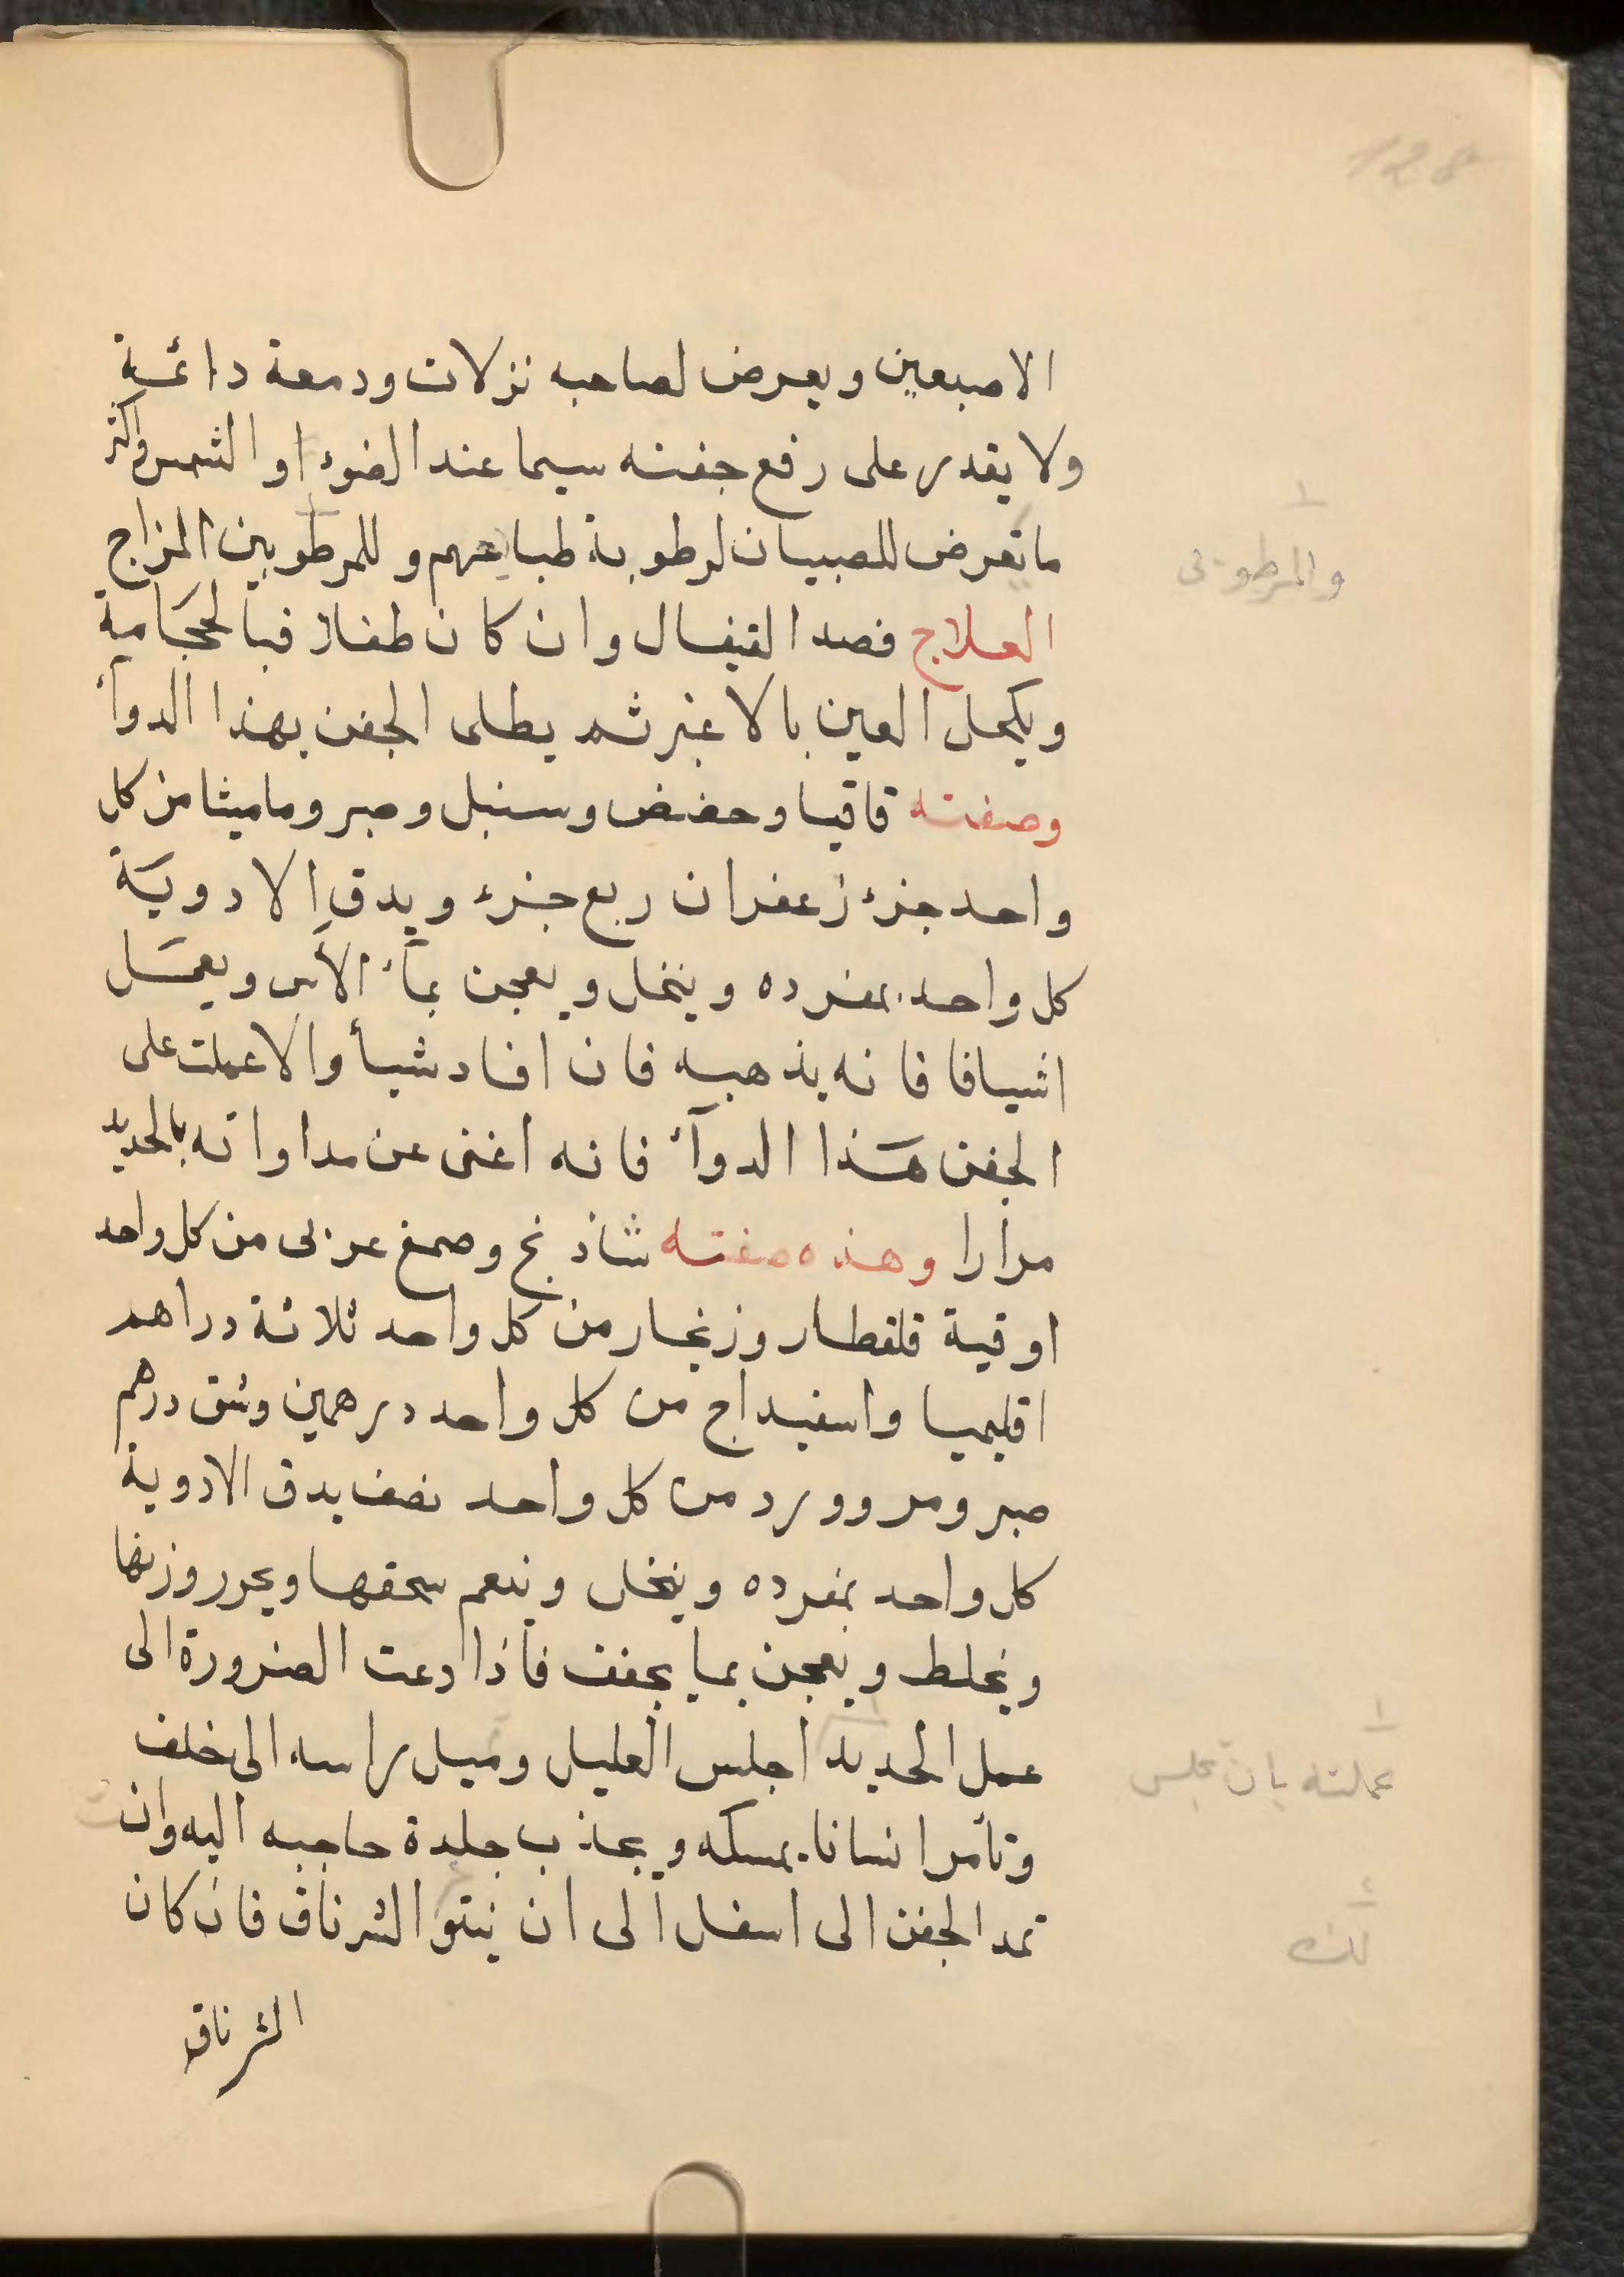 الاصبعين ويعرض لصاحبه نزلات ودمعة دائمة
ولا يقدر على رفع جفنه سيما عند الضوء او الشمس واكثر
ما تعرض للصبيان لرطوبة طباعهم وللمرطوبين المزاج
والمرطوبى
العلاج فصد القيفال وان كان طفلا فبالحجَامة
ويكحل العين بالاغبر ثم يطلى الجفن بهذا الدوآء
وصفته قاقيا وحضض وسنبل وصبر وماميثا من كل
واحد جزء زعفران ربع جزء ويدق الادويَة
كل واحد بمفرده وينخل ويعجن بمآء الآس ويعمَل
اشيافا فانه يذهبه فان افاد شيأ والا عملت على
الجفن هَذا الدوآء فانه اغنى عن مداواته بالحديد
مرارا وهذه صفته شاذنج وصمغ عربى من كل واحد
اوقية قلقطار وزنجار من كل واحد ثلاثة دراهم
اقليميا واسفيداج من كل واحد درهمين وشق درهم
صبر ومر وورد من كل واحد نصف يدق الادوية
كل واحد بمفرده وينخل وينعم سحقها ويحرر وزنها
ويخلط ويعجن بما يجفف فاذا دعت الضرورة الى
عمل الحديد اجلس العليل وميل راسه الى خلف
عملته بان تجلس
وتأمر انسانا يمسكه ويجذب جلدة حاجبه اليه وان
تمد الجفن الى اسفل الى ان ينتو الشرناق فان كان
لك
الشرناق